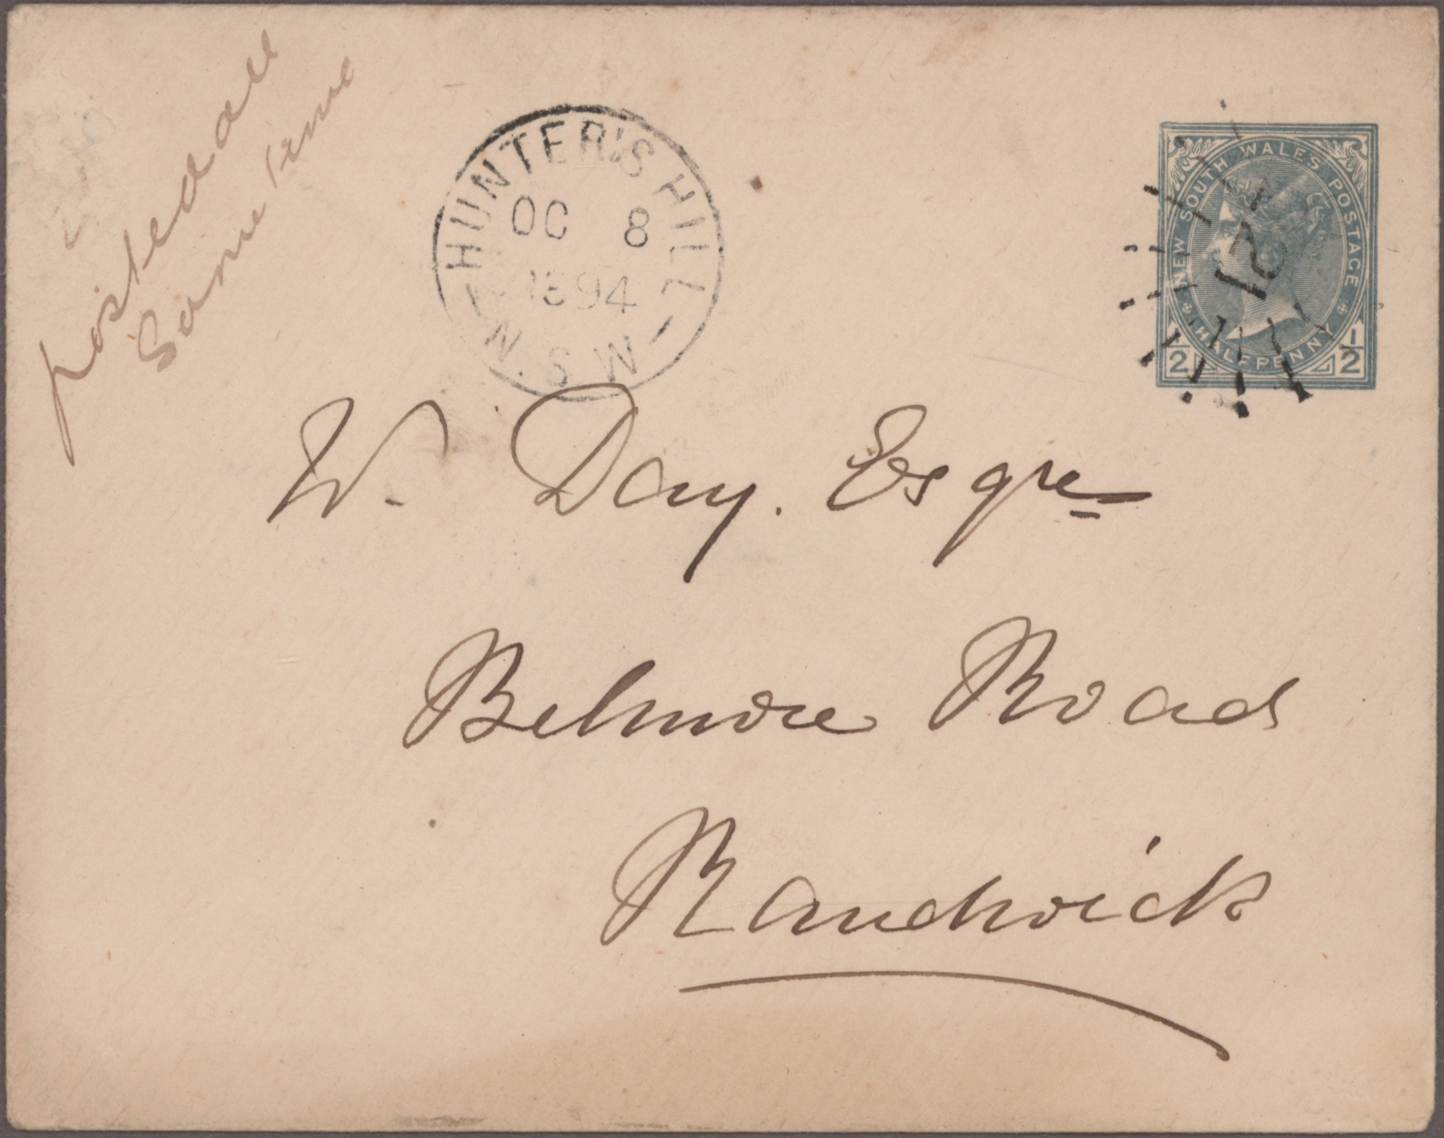 posted all
Same time
HUNTER'S HILL
OC 8
1894
N.S.W
NEW SOUTH WALES POSTAGE
HALFPENNY
1/2 1/2
W. Day. Esqre
Belmore Road
Randwick